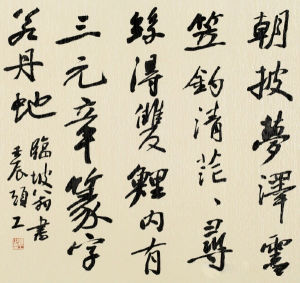 朝披夢澤雲
笠釣清茫〻尋
絲得雙鯉內有
三元章篆字
若丹虵
臨坡翁書
壬辰